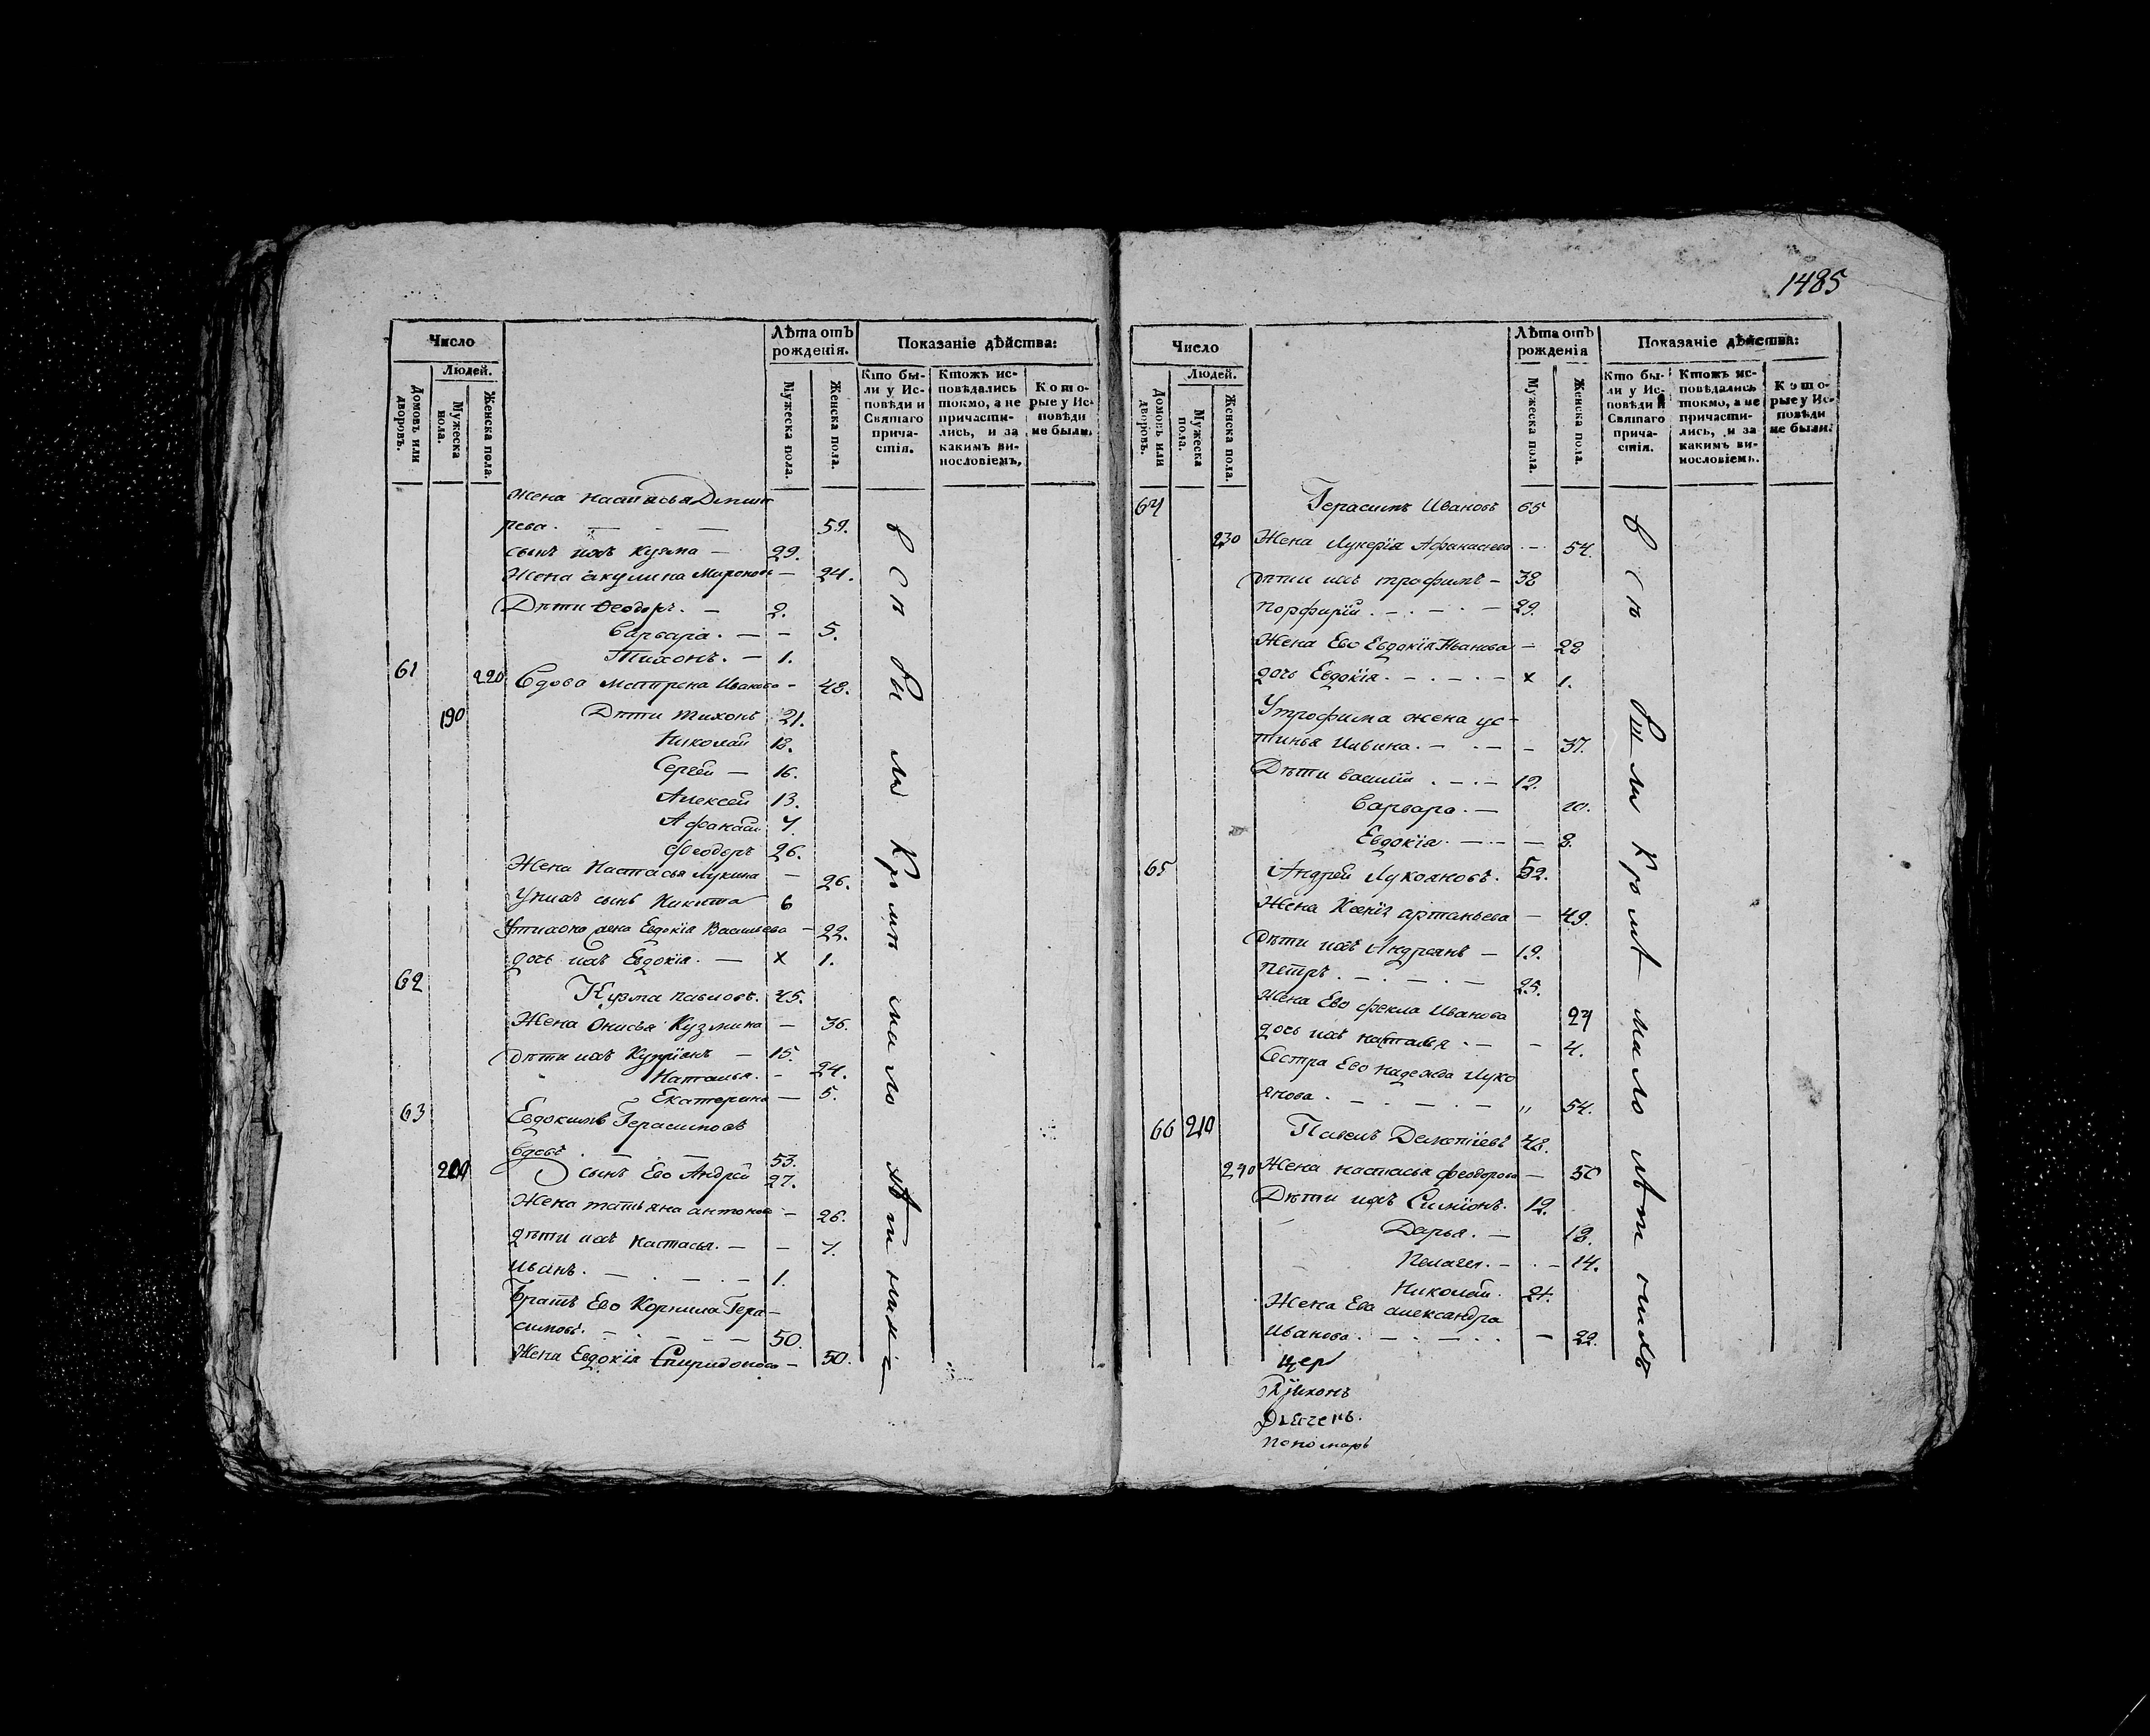 1485
Число
Людей.
Домовъ или дворовъ.
Мужеска пола.
Женска пола.
Лѣта отъ рожденія.
Мужеска пола.
Женска пола.
Показаніе дѣйства:
Кто бы-
ли у Ис-
повѣди и
Святаго
прича-
стія.
Ктожъ ис-
повѣдались
токмо, а не
причасти-
лись, и за
какимъ ви-
нословіемъ.
Кото-
рые у Ис-
повѣди
не были.
Жена Настасья Дмит
рева. — 59.
сынъ ихъ Кузма — 29.
Жена акулина Миронова — 24.
Дѣти Ѳеодоръ. — 2.
Варвара. — — 5.
Тихонъ. — 1.
61 220 Вдова Матрена Иванова — 48.
190 Дѣти Тихонъ 21.
Николай 18.
Сергей — 16.
Алексей 13.
Афанасий 7.
Феодоръ 26.
Жена Настасья Лукина — 26.
У них сынъ Никита 6
У тихона жена Евдокія Васильева — 22.
дочь ихъ Евдокія. — х 1.
62
Кузма павловъ. 45.
Жена Онисья Кузмина — 36.
дѣти ихъ Купріянъ — 15.
Наталья. — 24.
Екатерина — 5.
63
Евдокимъ Герасимовъ
вдовъ. — — 53.
200 сынъ Ево Андрей 27.
Жена татьяна антонова — 26.
дѣти ихъ Настасья. — — 7.
Иванъ. — . — . — 1.
Братъ Ево Корнила Гера-
симовъ. — . — . — 50.
Жена Евдокія Спиридонова — 50.
Всѣ были Кромѣ малолѣтнихъ
Число
Людей.
Домовъ или дворовъ.
Мужеска пола.
Женска пола.
Лѣта отъ рожденія
Мужеска пола.
Женска пола.
Показаніе дѣйства:
Кто бы-
ли у Ис-
повѣди и
Святаго
прича-
стія.
Ктожъ ис-
повѣдались
токмо, а не
причасти-
лись, и за
какимъ ви-
нословіемъ.
Кото-
рые у Ис-
повѣди
не были.
64 Герасимъ Ивановъ 65
230 Жена Лукерія Афанасиева — 54.
дѣти ихъ трофимъ — 38
Порфирій. — . — . — 29.
Жена Ево Евдокія Иванова — 28
дочь Евдокія. — . — . — х 1.
У трофима жена ус-
тинья Ильина. — . — — 37.
Дѣти Василій . — . — 12.
Варвара. — 10.
Евдокія. — . — — 8.
65 Андрей Лукояновъ. 52.
Жена Ксенія артамьева — 49.
дѣти ихъ Андреянъ — 19.
Петръ . — . — . — 25.
Жена Ево фекла Иванова 24
дочь ихъ наталья . — — 4.
Сестра Ево надежда Луко
янова . — . — . — „ 54.
66 210 Павелъ Дементіевъ 48.
240 Жена настасья феодорова — 50
Дѣти ихъ Симіонъ. 12.
Дарья. — 18.
Пелагея. — . — 14.
Николай. 24.
Жена Ева александра
Иванова. — . — . . — 22.
Всѣ были Кромѣ малолѣтнихъ
Дьячекъ.
пономарь